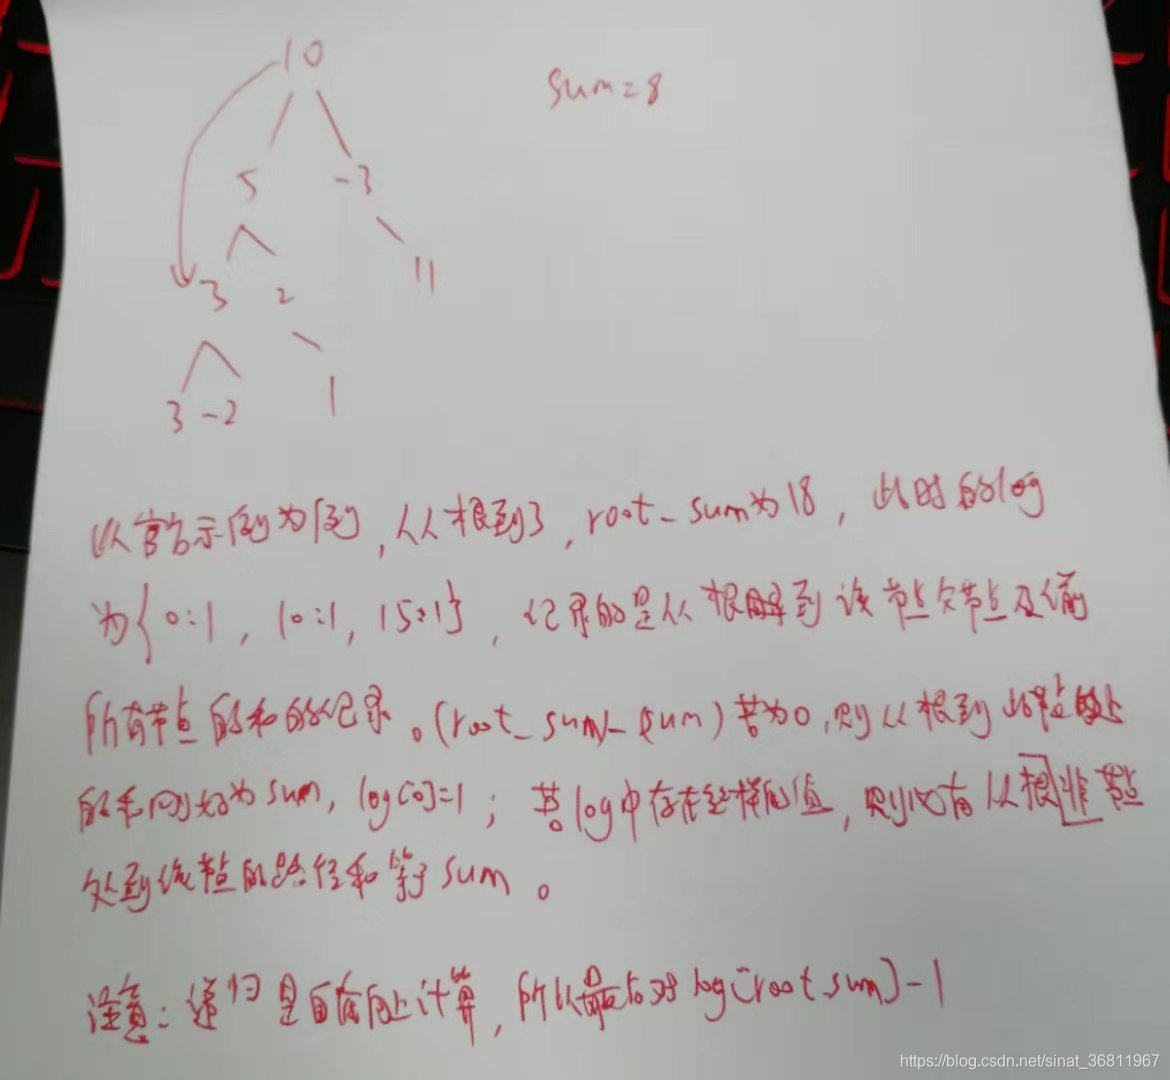 10
sum=8
5 -3
3 2 11
3 -2 1
以官方示例为例,从根到3,root_sum为18,此时的log
为{0:1,10:1,15:1},记录的是从根到该节点父节点及前
所有节点的和的记录。(root_sum-sum)若为0,则从根到此节点处
的和刚好为sum,log[0]=1;若log中存在这样的值,则必有从根非节点
处到该节点的路径和等于sum。
注意:递归是自底向上计算,所以最后对log[root_sum]-1
https://blog.csdn.net/sinat_36811967